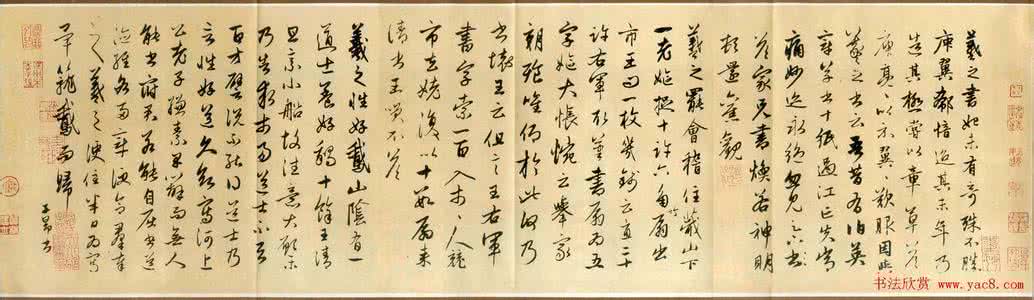 羲之書初未有奇殊不勝
庾翼郗愔迨其末年乃
造其極嘗以章草答
庾亮亮以示翼翼歎服因與
羲之書云吾昔有伯英
章草書十紙過江亡失常
痛妙迹永絕忽見足下書
答家兄書煥若神明
頓還舊觀
羲之罷會稽住蕺山下
一老嫗捉十許六角竹扇出
市王問一枚幾錢云直二十
許右軍取筆書扇扇為五
字嫗大悵惋云舉家
朝飡唯仰於此何乃
書壞王云但言王右軍
書字索一百入市市人競
市去姥復以十數扇來
請書王笑不答
羲之性好鵝山陰有一
道士養好鵝十餘王清
旦乘小船故往意大願樂
乃告求市易道士不與
百方譬說不能得道士乃
言性好道久欲寫河上
公老子縑素早辦而無人
能書府君若能自屈書道
德經各兩章便合羣奉
羲之便住半日為寫
畢籠鵝而歸 子昂書
书法欣赏
www.yac8.com